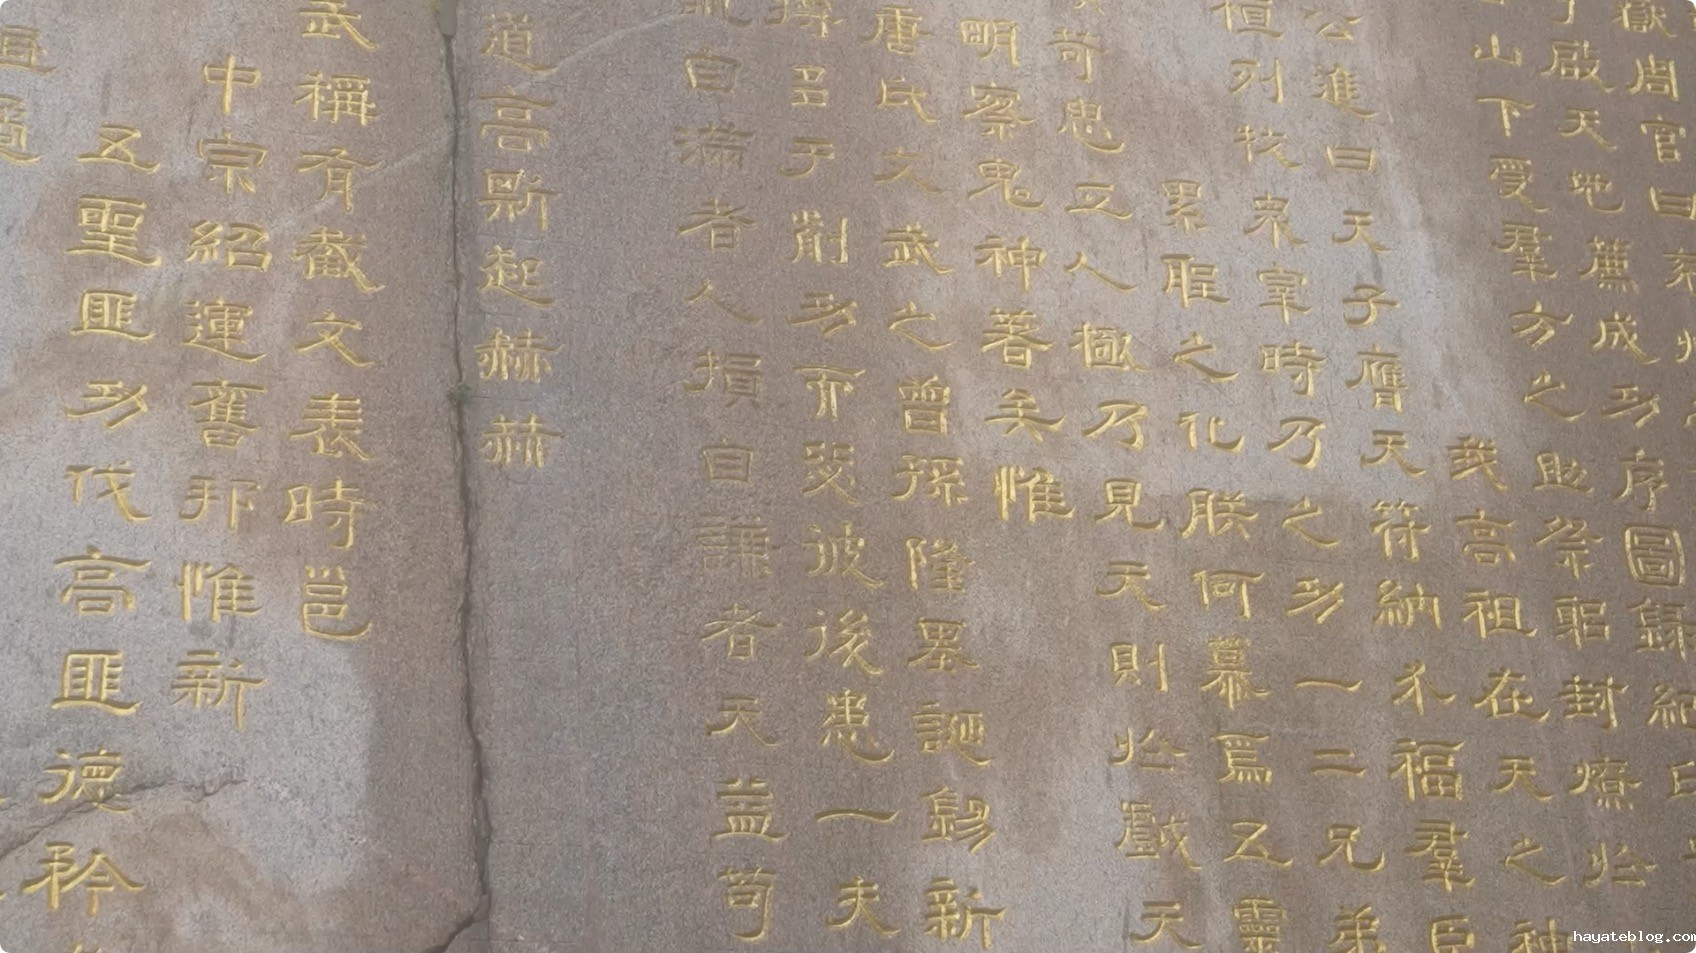 嶽周官曰兗州
啟天地薦成功序圖錄紀
山下受羣方之助祭躬封燎於
我高祖在天之神
公進曰天子膺天符納介福羣臣
列牧衆宰時乃之功一二兄弟
累聖之化朕何慕焉五靈
苛思立人極乃見天則於戲天
明察鬼神著矣惟
唐氏文武之曾孫隆基誕錫新
多于前功而毖彼後患一夫
自滿者人損自謙者天益苟
道高斯起赫赫
武稱有截文表時邕
中宗紹運舊邦惟新
五聖匪功伐高匪德矜
hayateblog.com